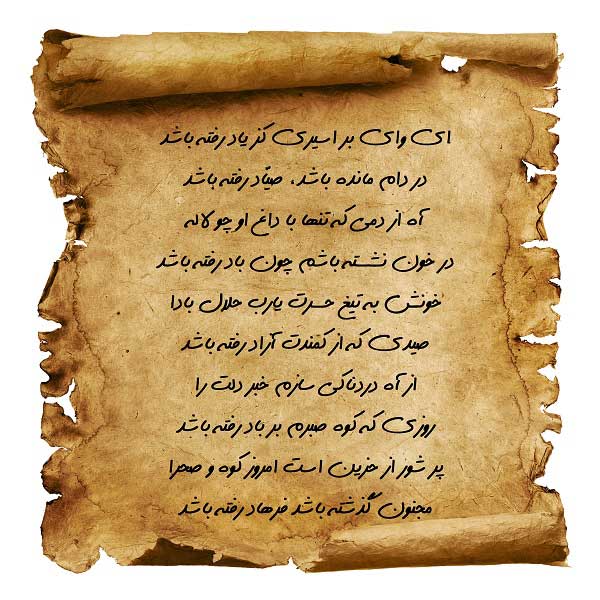 ای وای بر اسیری کز یاد رفته باشد
در دام مانده باشد، صیّاد رفته باشد
آه از دمی که تنها با داغ او چو لاله
در خون نشسته باشم چون باد رفته باشد
خونش به تیغ حسرت یارب حلال بادا
صیدی که از کمندت آزاد رفته باشد
از آه دردناکی سازم خبر دلت را
روزی که کوه صبرم بر باد رفته باشد
پر شور از حزین است امروز کوه و صحرا
مجنون گذشته باشد فرهاد رفته باشد